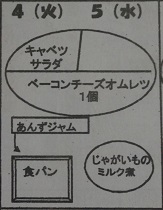 4（火） 5（水）
キャベツ
サラダ
ベーコンチーズオムレツ
1個
あんずジャム
食パン
じゃがいもの
ミルク煮